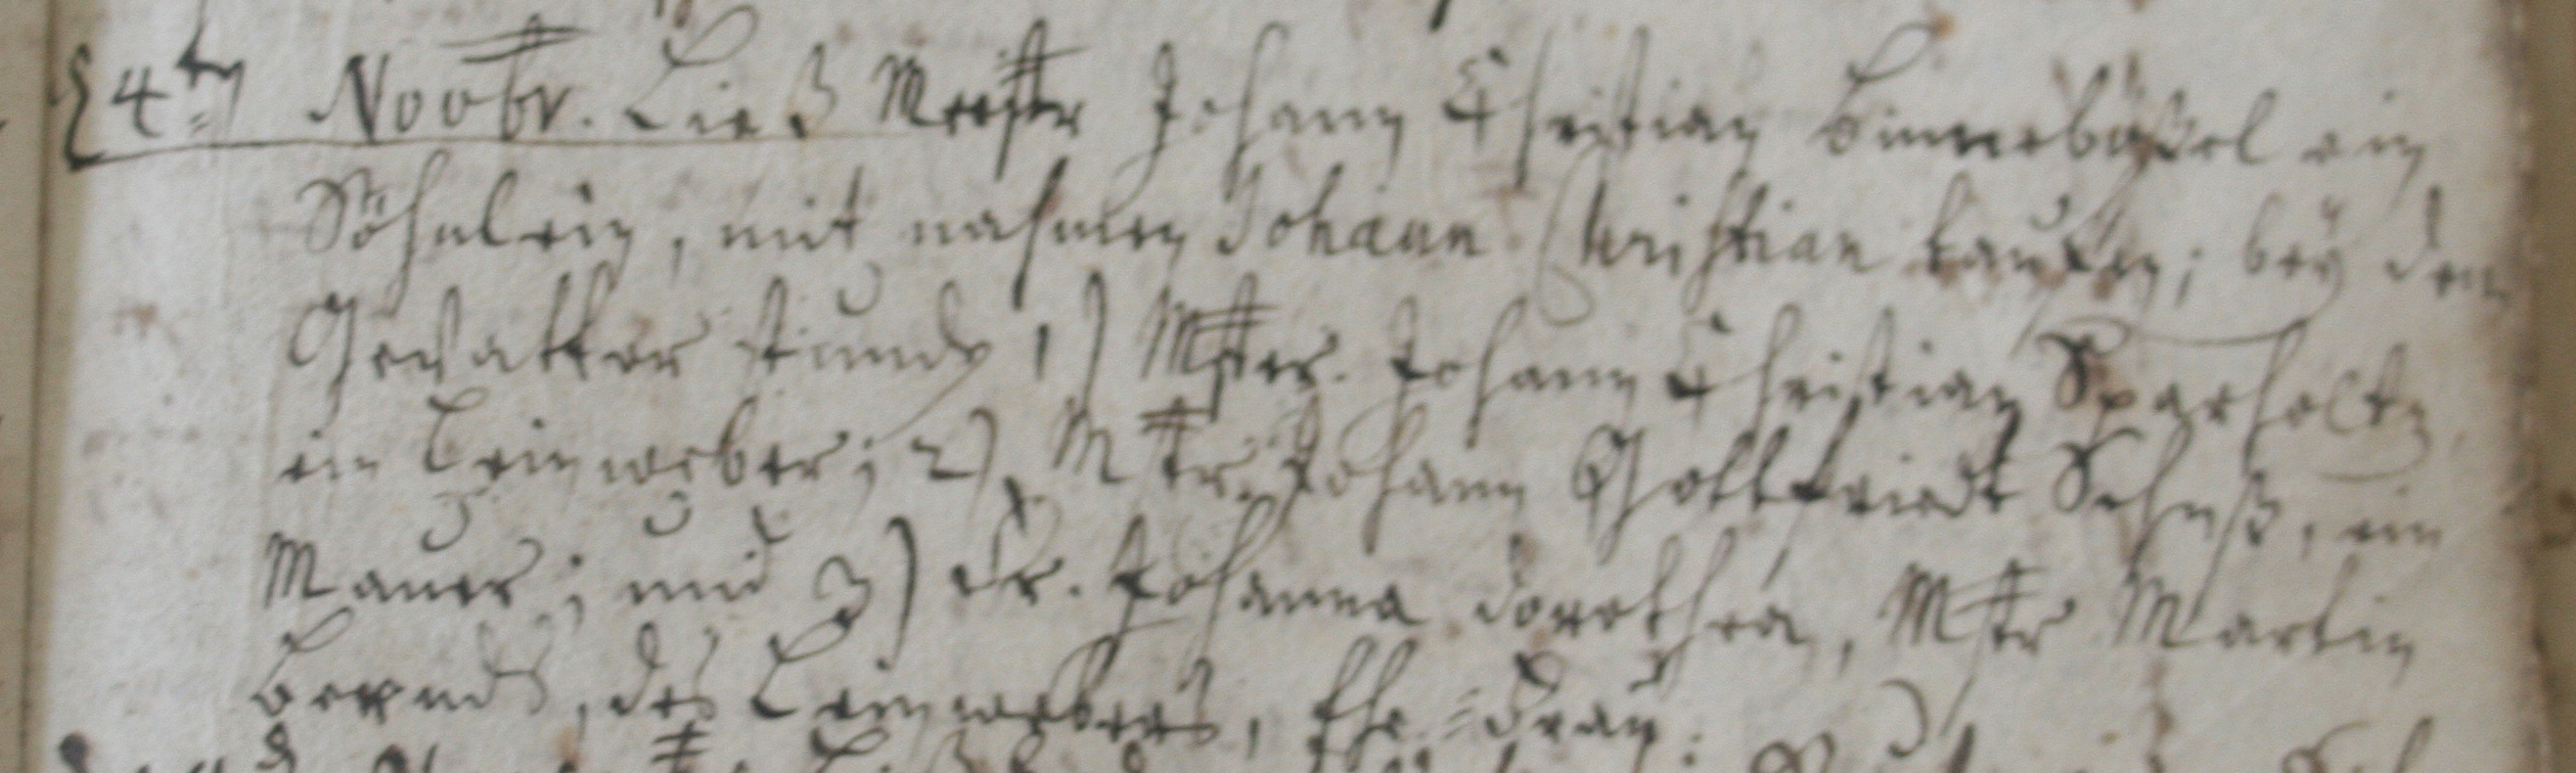 4ten Novbr. Ließ Meister Johann Christian Binnebößel ein
Söhnlein, mit nahmen Johann Christian tauffen; beÿ dem
Gevatter stunde 1) Mstr. Johann Christian Sparholtz
ein Leinweber; 2) Mstr. Johann Gottfriedt Schuß, ein
Maurer; und 3) Fr. Johanna Dorothea, Mstr Martin
Berends, des Leinwebers, Ehe=Frau.